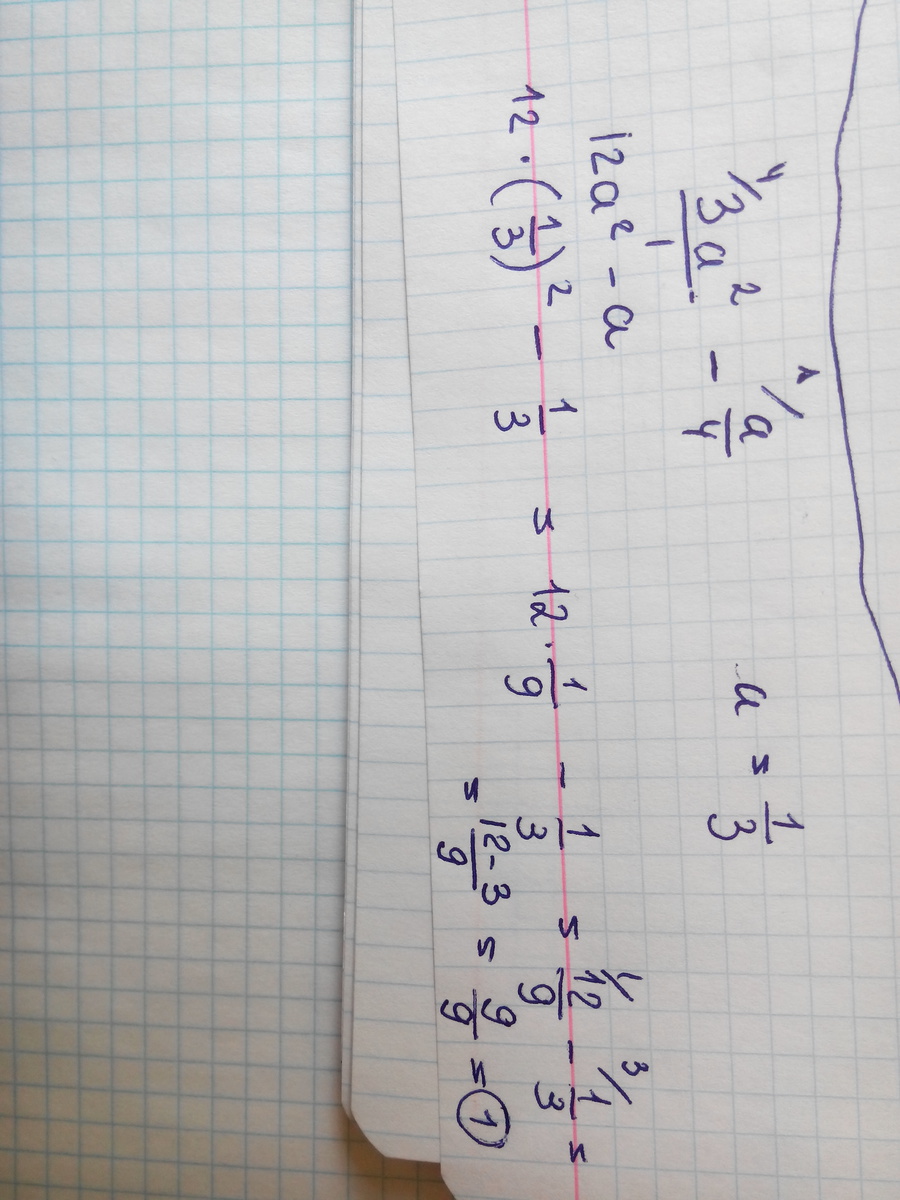 4/ 3a²/1 - 1/ a/4 a = 1/3
12a² - a
12 · (1/3)² - 1/3 = 12 · 1/9 - 1/3 = 1/ 12/9 - 3/ 1/3 =
= 12-3/9 = 9/9 = 1